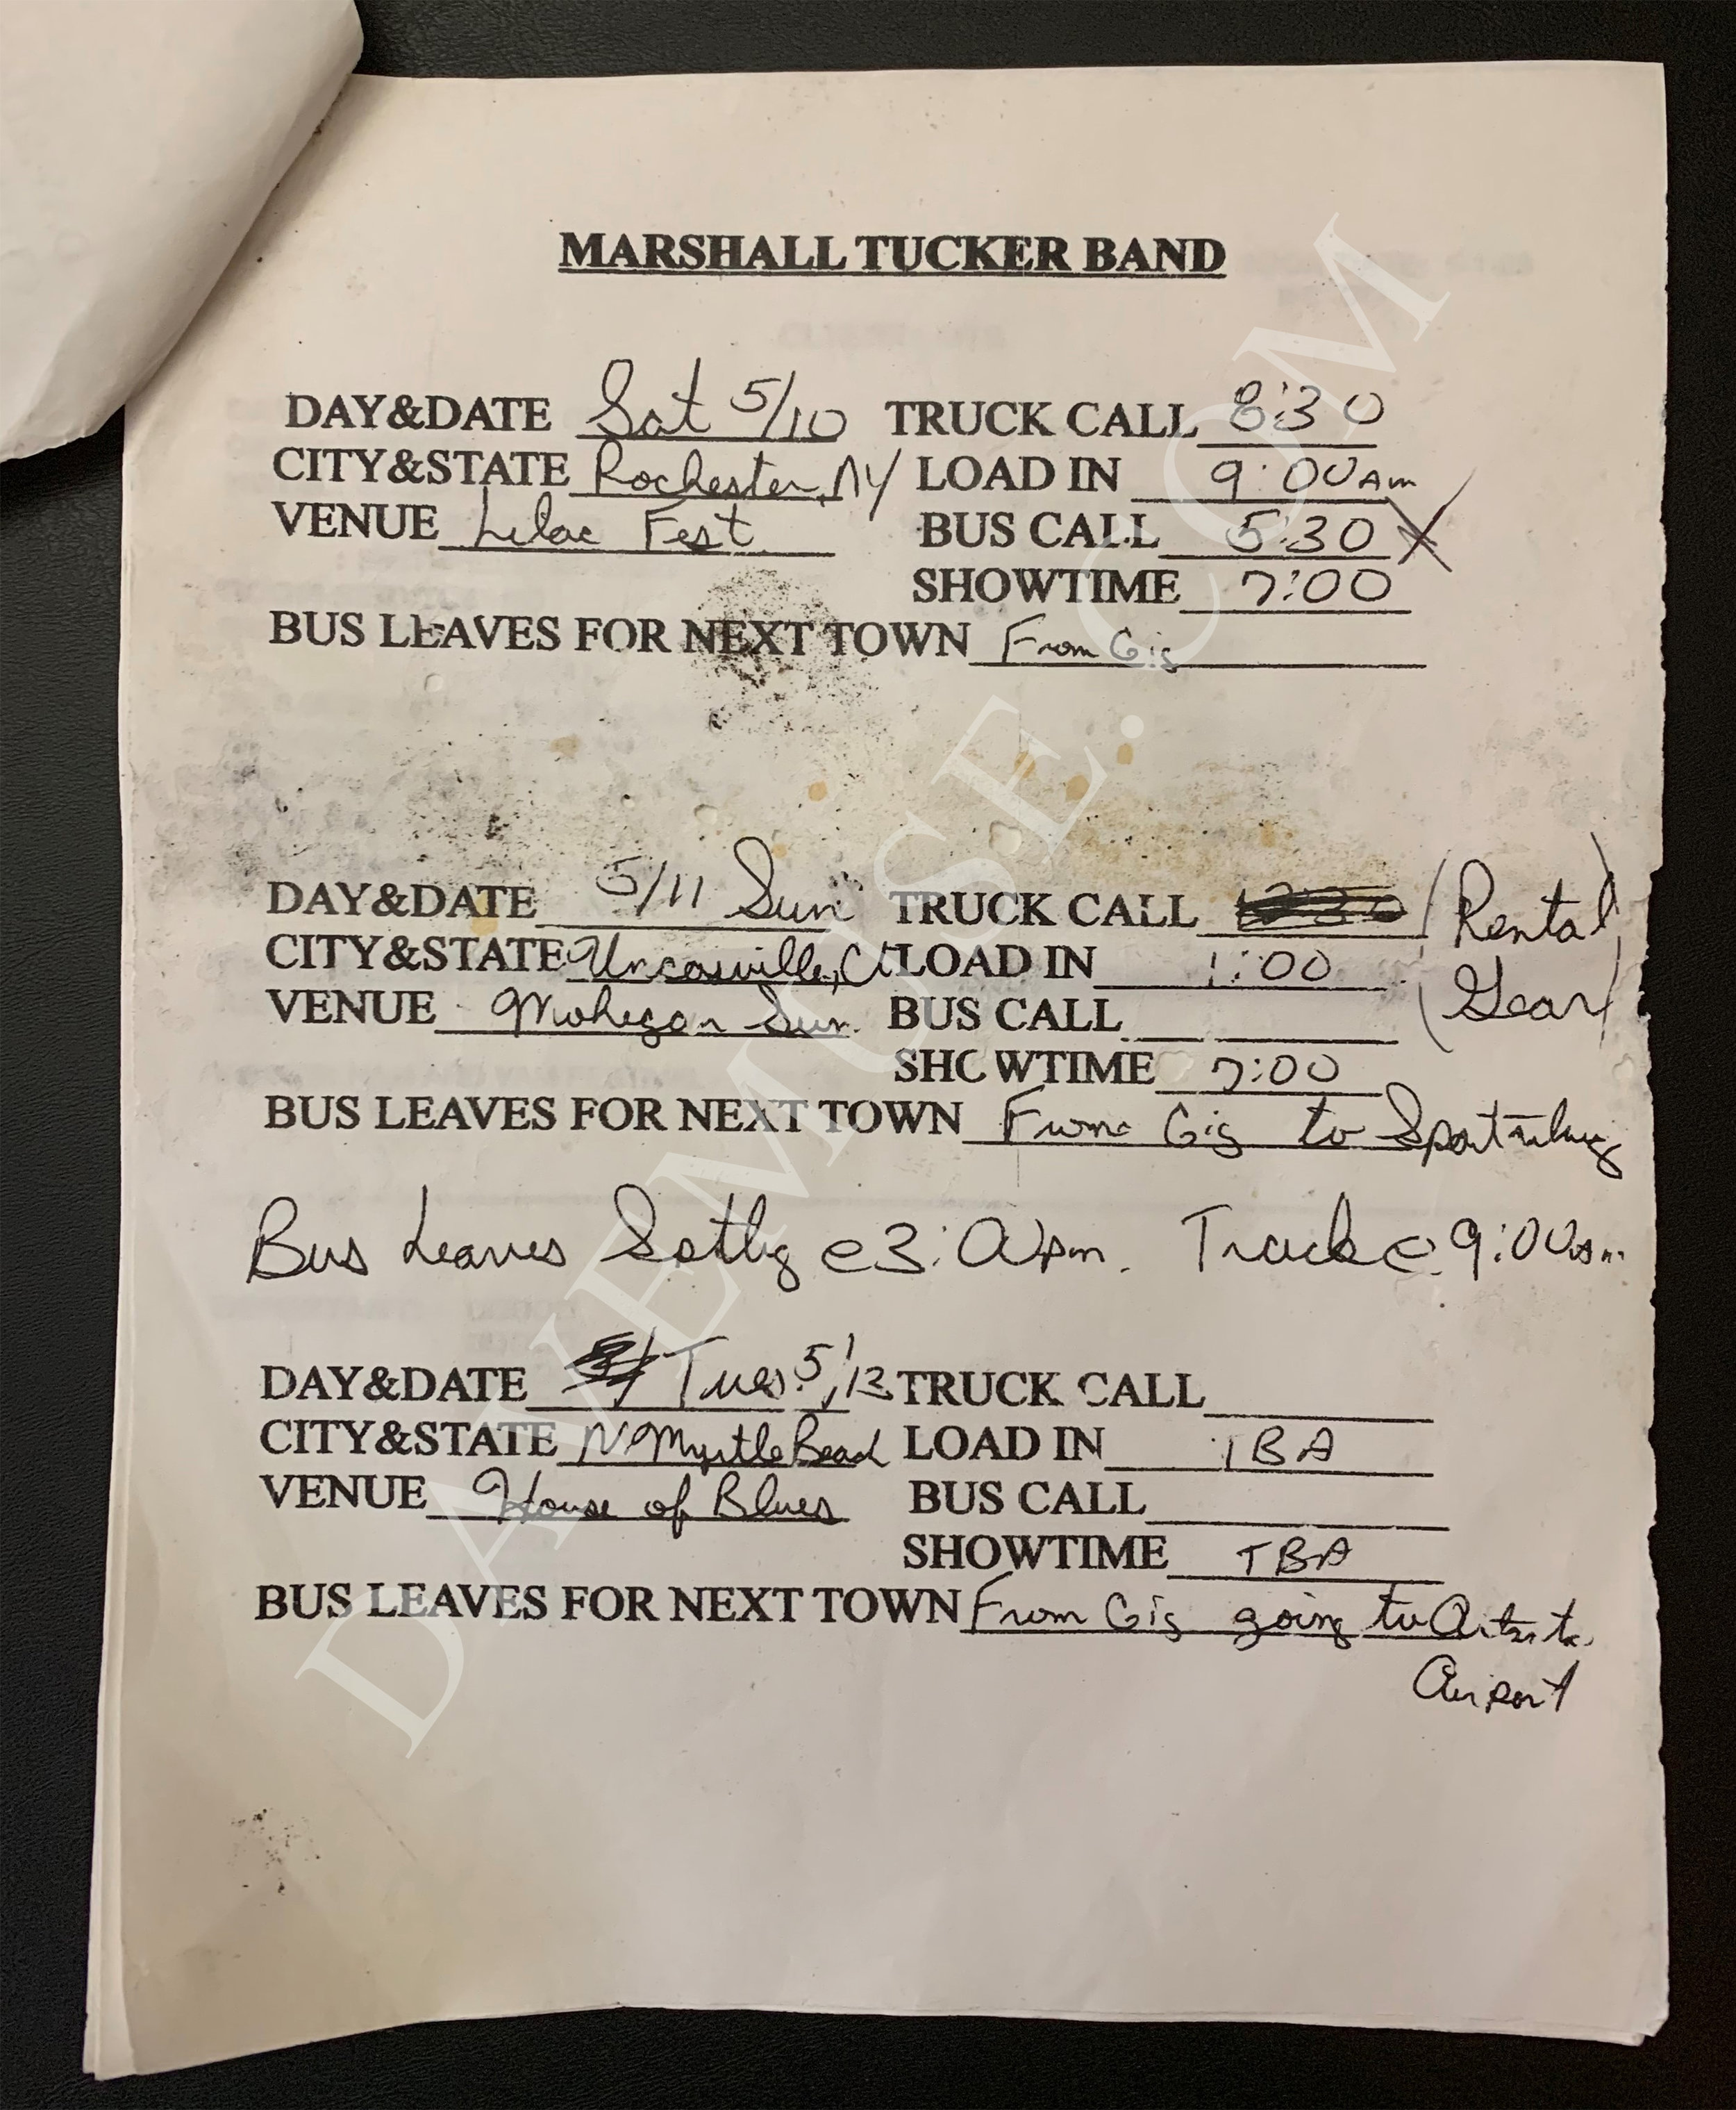 MARSHALL TUCKER BAND
DAY&DATE Sat 5/10 TRUCK CALL 8:30
CITY&STATE Rochester, NY LOAD IN 9:00 Am
VENUE Lilac Fest BUS CALL 5:30 X
SHOWTIME 7:00
BUS LEAVES FOR NEXT TOWN From Gig
DAY&DATE 5/11 Sun TRUCK CALL (Rental
CITY&STATE Uncasville, Ct LOAD IN 1:00 Gear)
VENUE Mohegan Sun BUS CALL
SHOWTIME 7:00
BUS LEAVES FOR NEXT TOWN From Gig to Spartanburg
Bus Leaves Sptbg @ 3:00pm. Truck @ 9:00am
DAY&DATE Tues 5/13 TRUCK CALL
CITY&STATE N. Myrtle Beach LOAD IN TBA
VENUE House of Blues BUS CALL
SHOWTIME TBA
BUS LEAVES FOR NEXT TOWN From Gig going to
Airport
DAVEMUSE.COM